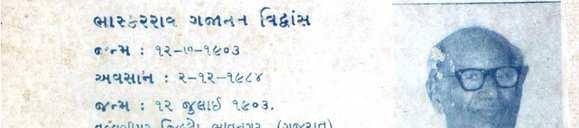 ભાસ્કરરાવ ગજાનન વિદ્વાંસ
જન્મ : ૧૨-૭-૧૯૦૩
અવસાન : ૨-૧૨-૧૯૮૪
જન્મ : ૧૨ જુલાઈ ૧૯૦૩.
જિલ્લો ભાવનગર (ગુજરાત)